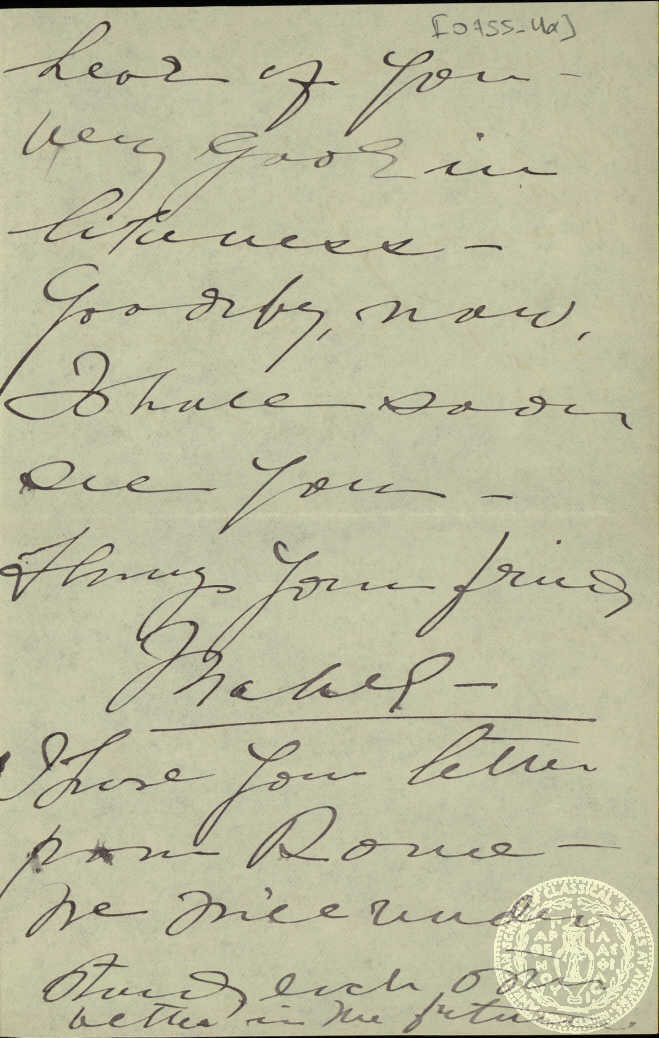 [0755-4α]
hear of you –
very good in
likeness –
Goodby, now,
I shall soon
see you –
Always your friend
Mabel –
I have your letter
from Rome –
We will under
stand each other
better in the future.